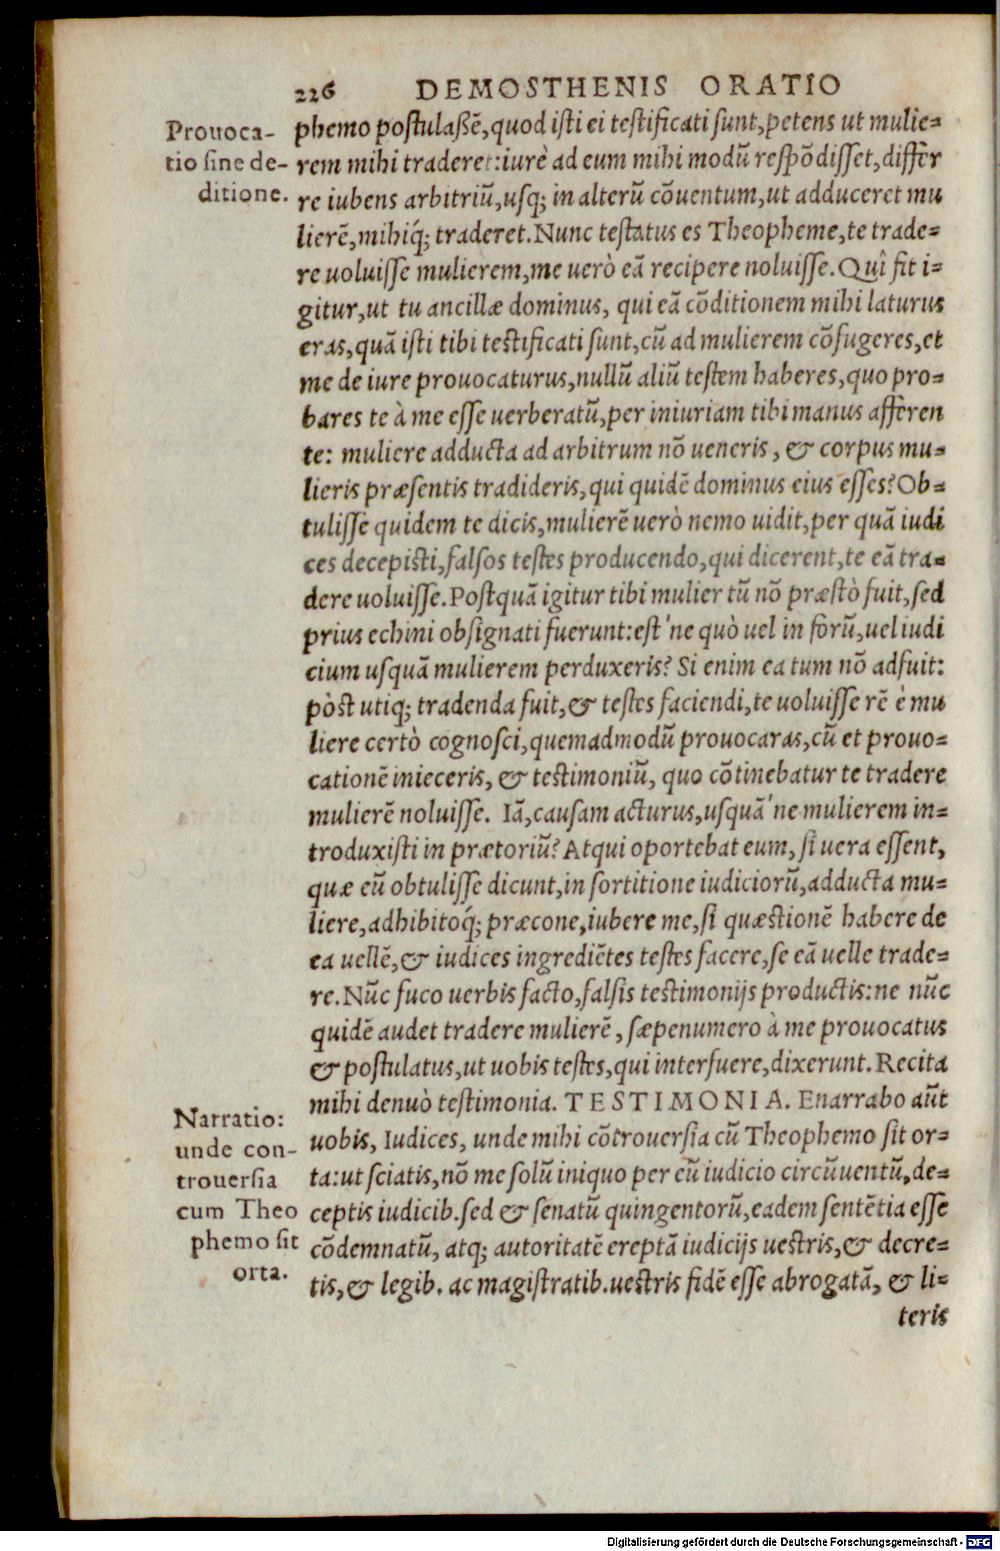 226 DEMOSTHENIS ORATIO
Prouoca-
tio sine de-
ditione.
phemo postulaßē, quod isti ei testificati sunt, petens ut mulie=
rem mihi traderet: iurè ad eum mihi modū respōdisset, differ
re iubens arbitriū, usq; in alterū cōuentum, ut adduceret mu
lierē, mihiq́; traderet. Nunc testatus es Theopheme, te trade=
re uoluisse mulierem, me uerò eā recipere noluisse. Quî fit i=
gitur, ut tu ancillæ dominus, qui eā cōditionem mihi laturus
eras, quā isti tibi testificati sunt, cū ad mulierem cōfugeres, et
me de iure prouocaturus, nullū aliū testem haberes, quo pro=
bares te à me esse uerberatū, per iniuriam tibi manus afferen
te: muliere adducta ad arbitrum nō ueneris, & corpus mu=
lieris præsentis tradideris, qui quidē dominus eius esses? Ob=
tulisse quidem te dicis, mulierē uerò nemo uidit, per quā iudi
ces decepisti, falsos testes producendo, qui dicerent, te eā tra=
dere uoluisse. Postquā igitur tibi mulier tū nō præstò fuit, sed
prius echini obsignati fuerunt: est'ne quò uel in forū, uel iudi
cium usquā mulierem perduxeris? Si enim ea tum nō adfuit:
pòst utiq; tradenda fuit, & testes faciendi, te uoluisse rē è mu
liere certò cognosci, quemadmodū prouocaras, cū et prouo=
cationē inieceris, & testimoniū, quo cōtinebatur te tradere
mulierē noluisse. Iā, causam acturus, usquā'ne mulierem in=
troduxisti in prætoriū? Atqui oportebat eum, si uera essent,
quæ eū obtulisse dicunt, in sortitione iudiciorū, adducta mu=
liere, adhibitoq́; præcone, iubere me, si quæstionē habere de
ea uellē, & iudices ingrediētes testes facere, se eā uelle trade=
re. Nūc fuco uerbis facto, falsis testimonijs productis: ne nūc
quidē audet tradere mulierē, sæpenumero à me prouocatus
& postulatus, ut uobis testes, qui interfuere, dixerunt. Recita
mihi denuò testimonia. TESTIMONIA. Enarrabo aūt
Narratio:
unde con-
trouersia
cum Theo
phemo sit
orta.
uobis, Iudices, unde mihi cōtrouersia cū Theophemo sit or=
ta: ut sciatis, nō me solū iniquo per eū iudicio circūuentū, de=
ceptis iudicib. sed & senatū quingentorū, eadem sentētia esse
cōdemnatū, atq; autoritatē ereptā iudicijs uestris, & decre=
tis, & legib. ac magistratib. uestris fidē esse abrogatā, & li=
teris
Digitalisierung gefördert durch die Deutsche Forschungsgemeinschaft - DFG